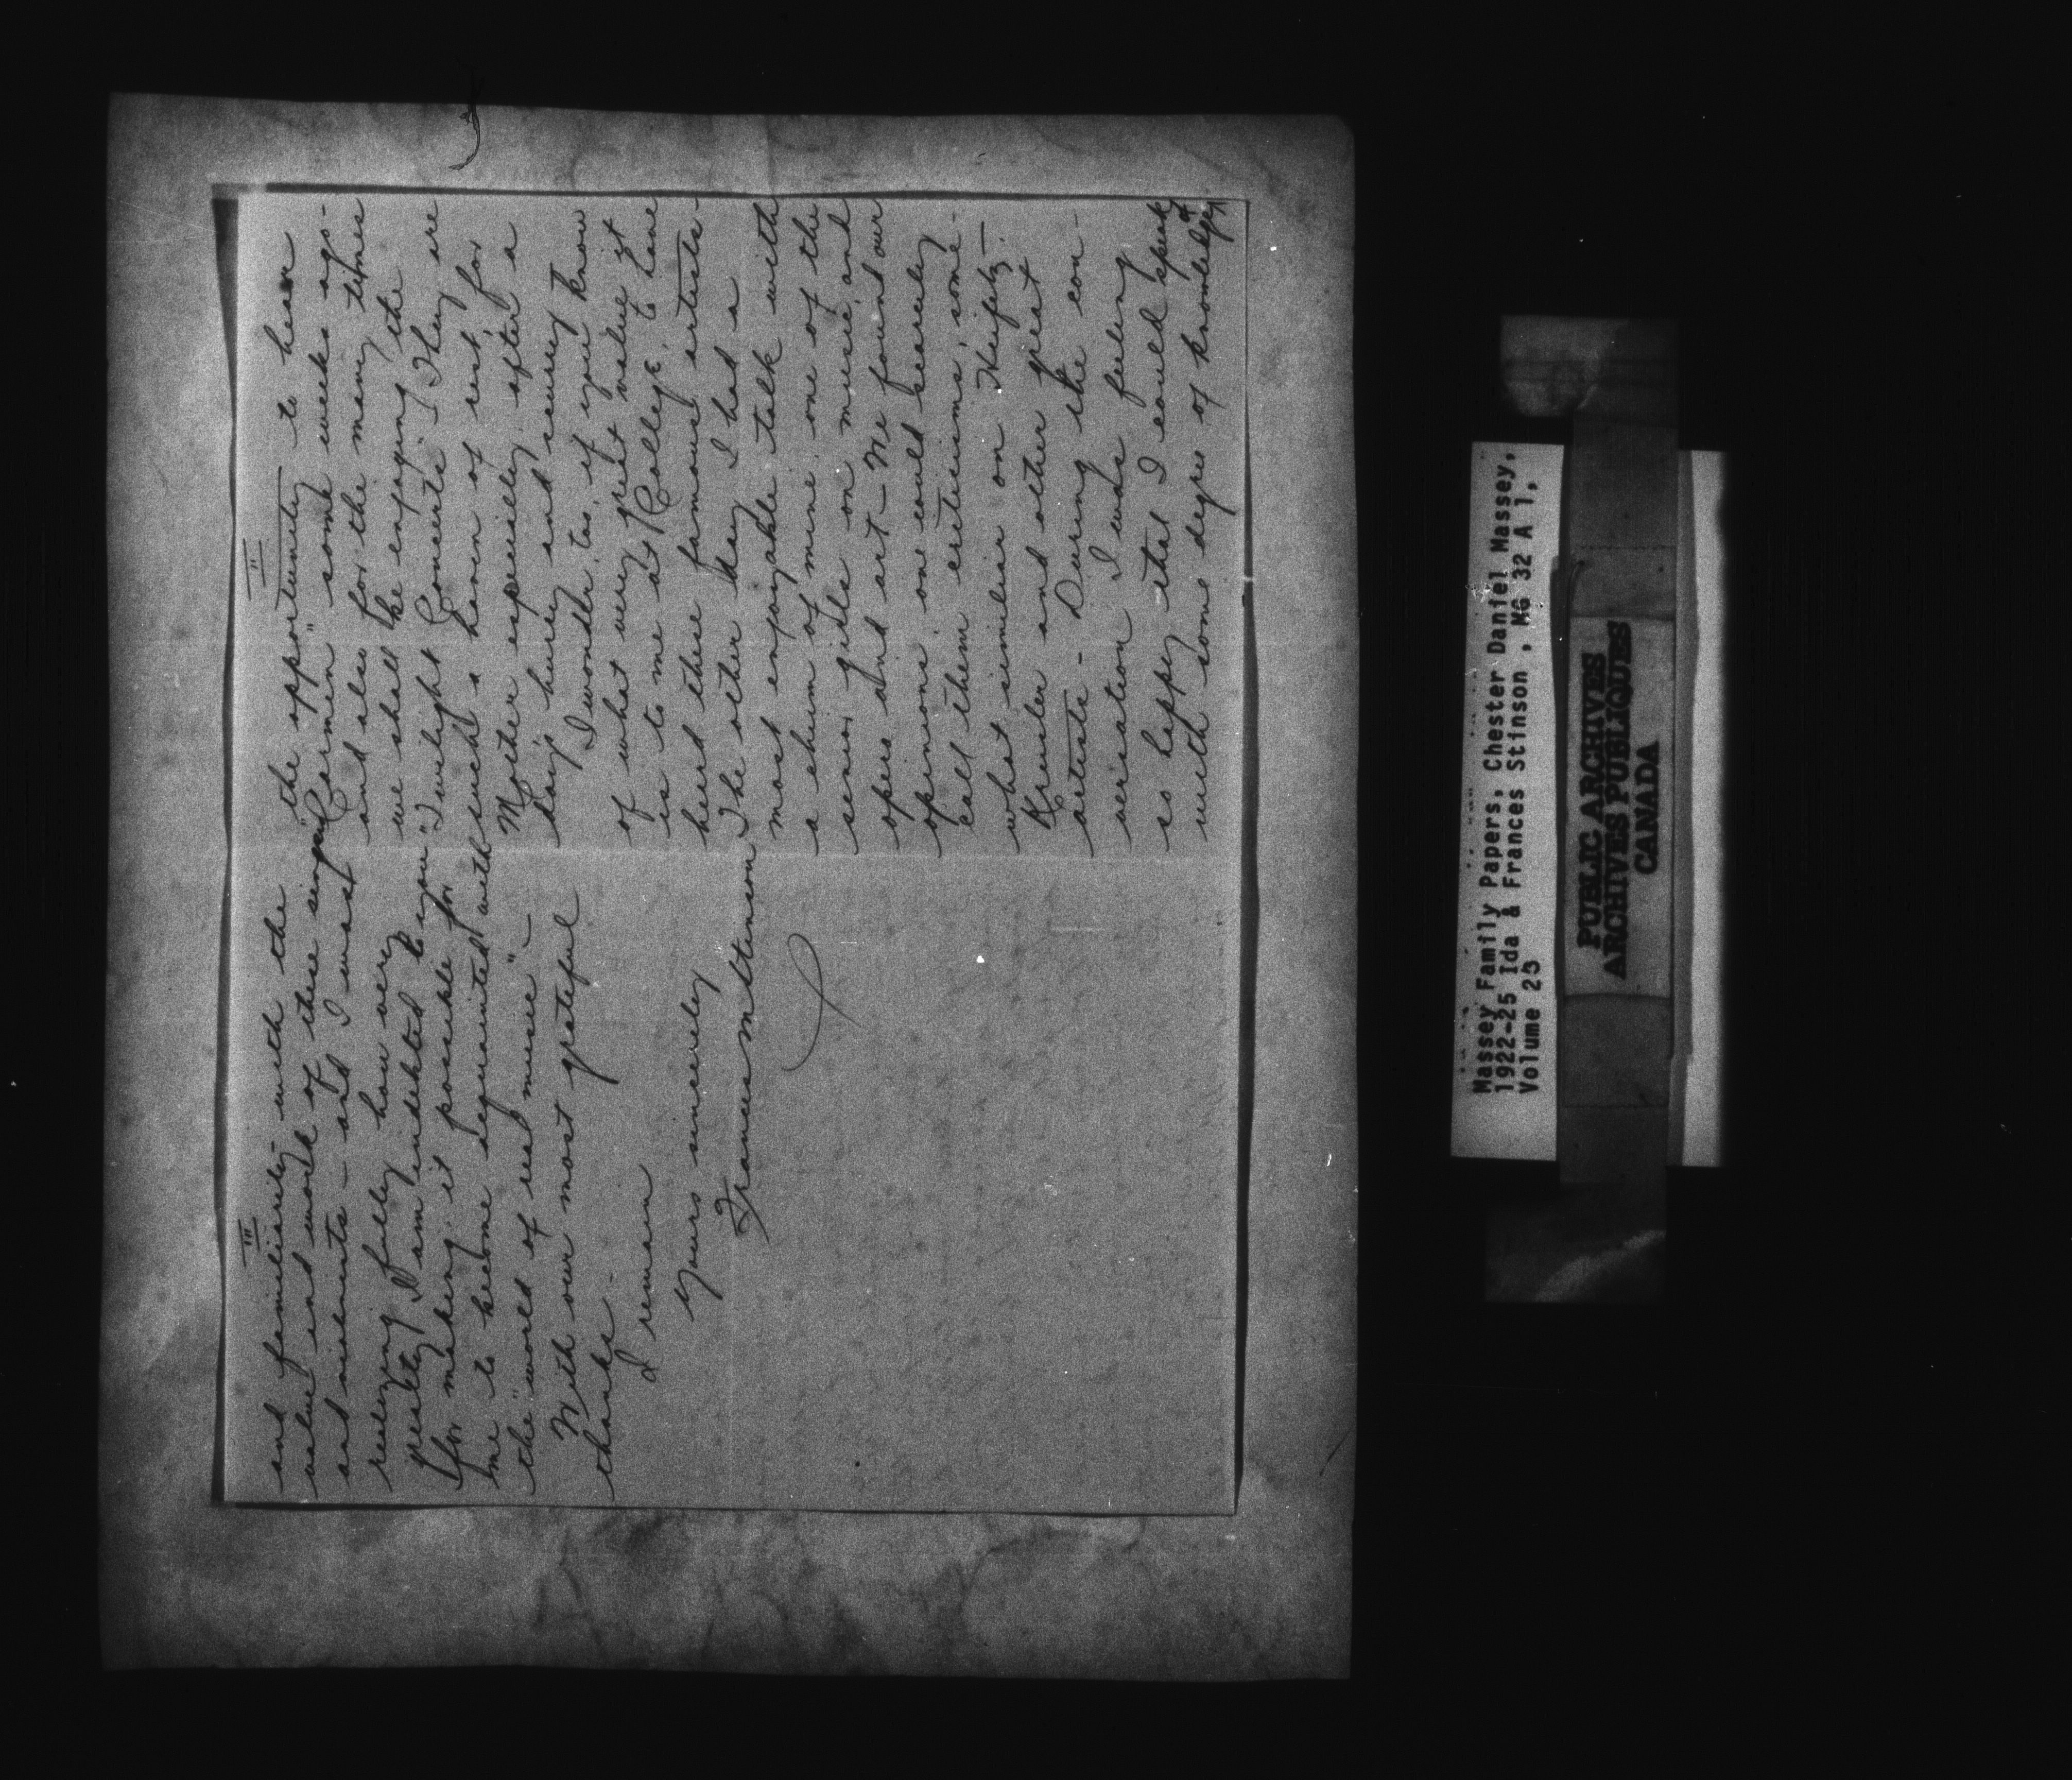 II
the opportunity to hear
"Carmen" some weeks ago -
and also for the many times
we shall be enjoying the
"Twilight Concerts". They are
such a haven of rest, for
Mother especially, after a
day's hurry and scurry
I wonder, too, if you know
of what very great value it
is to me at College, to have
herd these famous artists -
The other day I had a
most enjoyable talk with
a chum of mine, one of the
senior girls on music and
opera and art - We found our
opinions, one could scarcely
call them criticisms, some-
what similar on Heifetz -
Kreisler and other great
artists - During the con-
versation I was feeling
so happy that I could speak
with some degree of knowledge of
III
and familiarity with the
value and work of these singers
and violinists - and I must
realizing fully how very
greatly I am indebted to you
for making it possible for
me to become acquainted with
the "world of real music" -
With our most grateful
thanks -
I remain
Yours sincerely
Frances M Stinson
Massey Family Papers, Chester Daniel Massey,
1922-25 Ida & Frances Stinson , MG 32 A 1,
Volume 25
PUBLIC ARCHIVES
ARCHIVES PUBLIQUES
CANADA